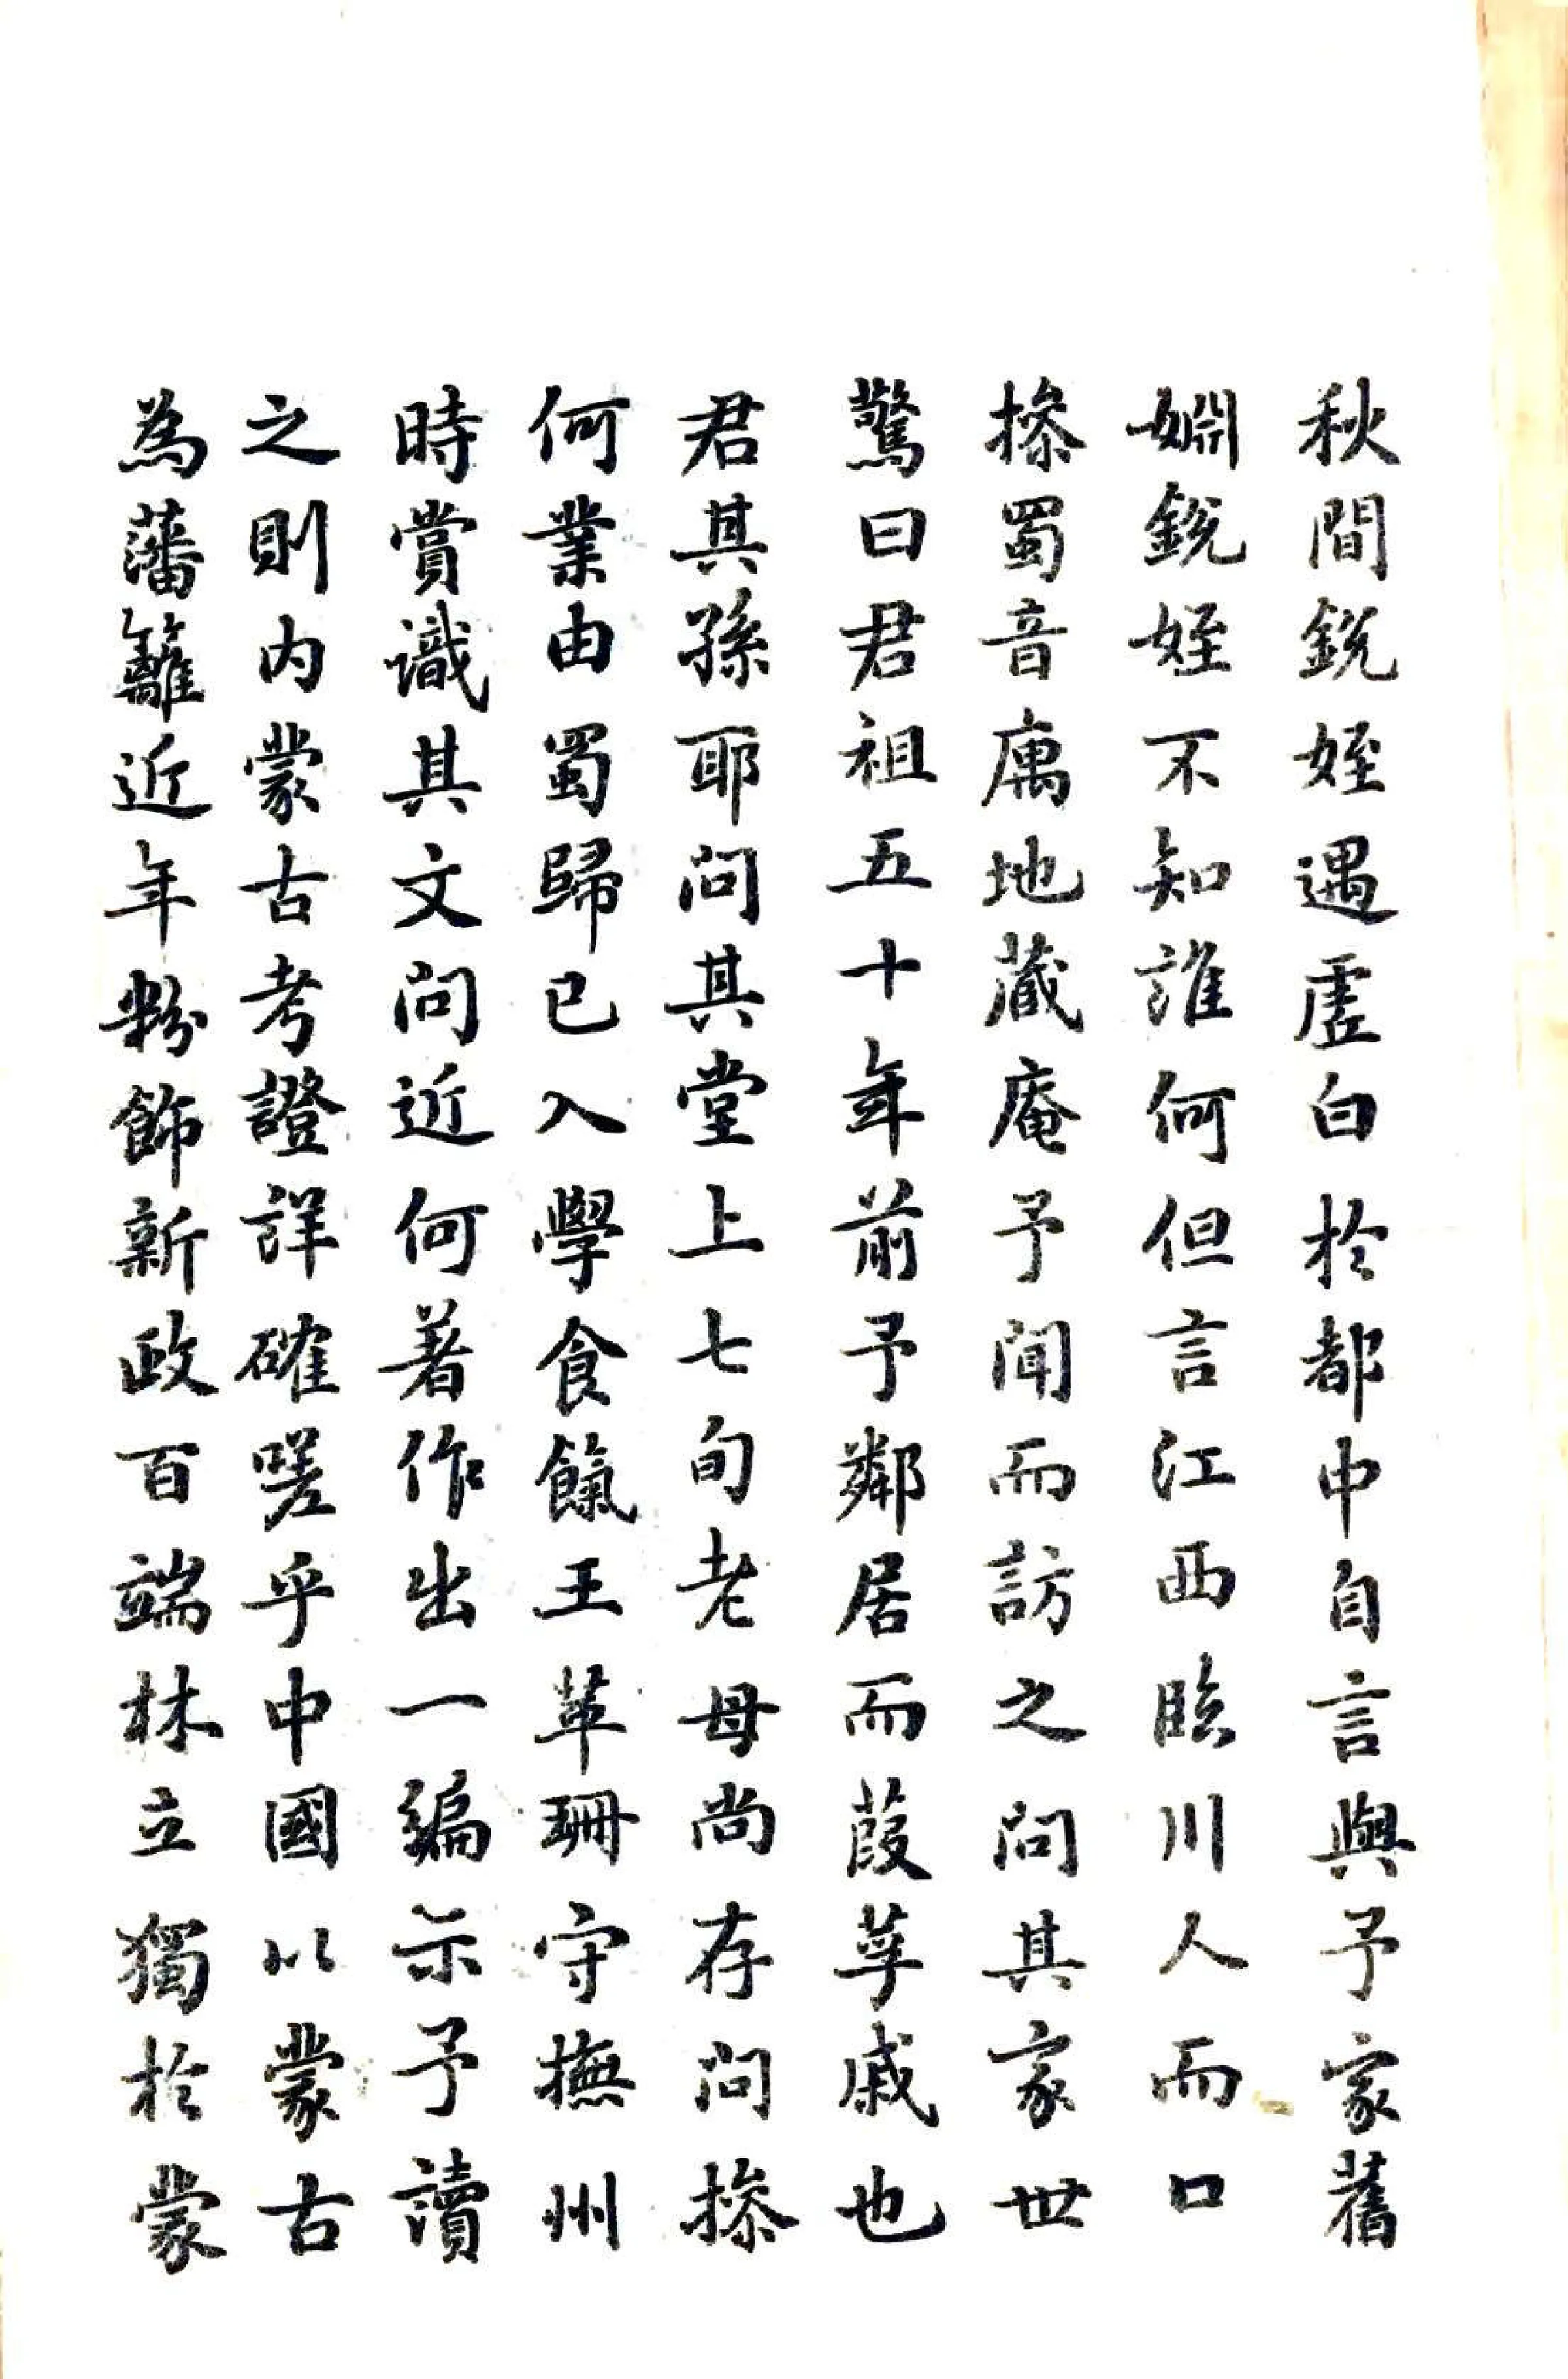 秋間銳姪遇虛白於都中自言與予家舊
婣銳姪不知誰何但言江西臨川人而口
摻蜀音寓地藏庵予聞而訪之問其家世
驚曰君祖五十年前予鄰居而葭莩戚也
君其孫耶問其堂上七旬老母尚存問摻
何業由蜀歸已入學食餼王革珊守撫州
時賞識其文問近何著作出一編示予讀
之則內蒙古考證詳確嗟乎中國以蒙古
為藩籬近年粉飾新政百端林立獨於蒙